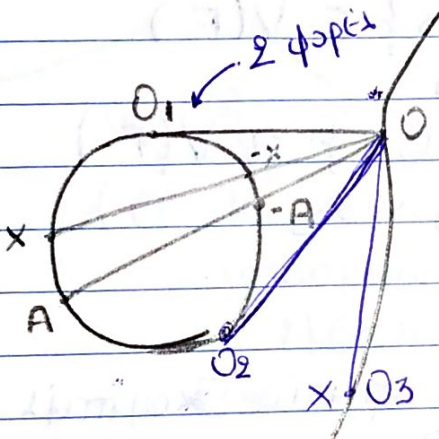 2 φορές
O₁
O
-x
x
-A
A
O₂
x O₃